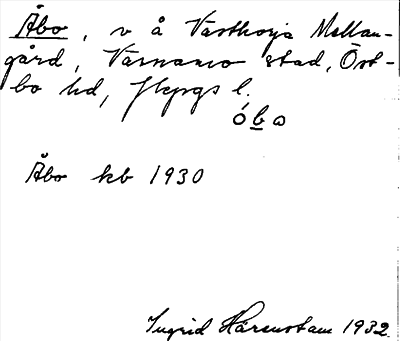 Åbo, v å Västhorja Mellan-
gård, Värnamo stad, Öst-
bo hd, Jkpgs l.
óbo
Åbo kb 1930
Ingrid 1932.